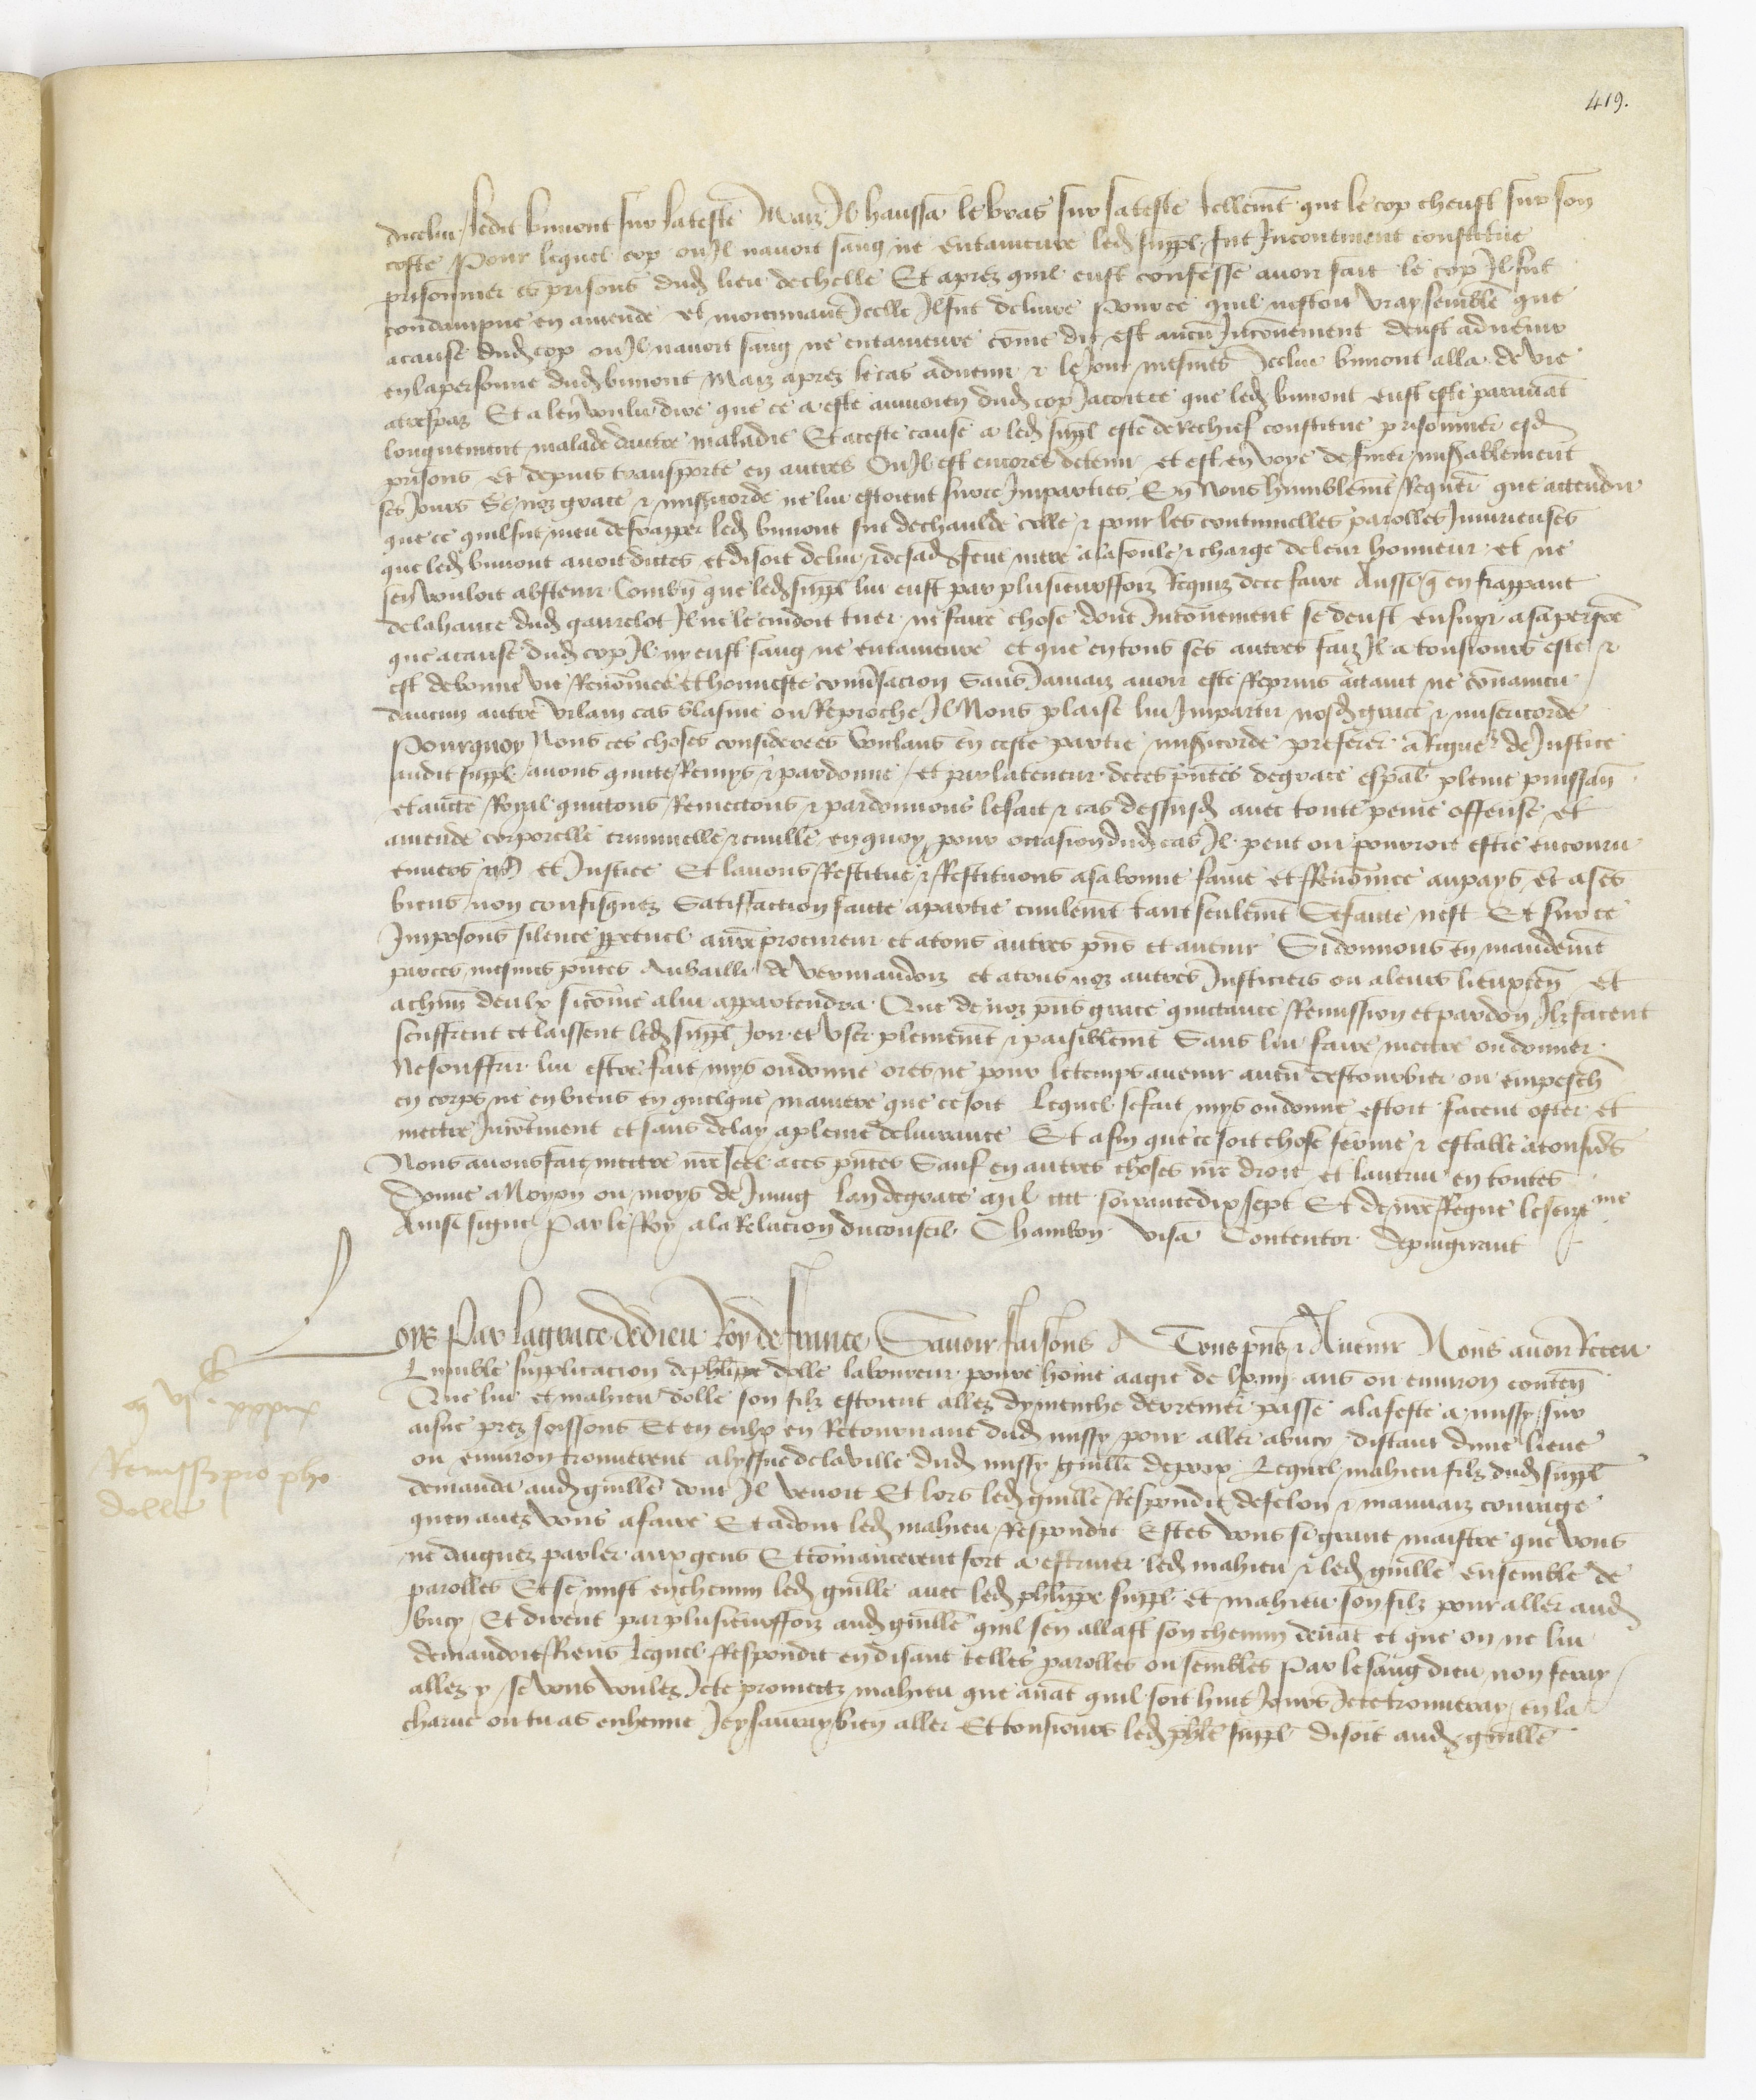 419.
dicelui ledit bimont sur la teste Maiz Il haussa le bras sur sa teste tellemt que le cop cheust sur son
coste Pour lequel cop ou Il navoit sang ne entameure led suppl fut Incontinent constitue
prisonnier es prisons dud lieu de chelle Et aprez quil eust confesse avoir fait le cop Il fut
condampne en amende et moiennant Icelle Il fut delivre Pource quil nestoit vray semble que
a cause dud cop ou Il navoit sang ne entameure come dit est aucun Inconvenient deust advenir
en la personne dud bimont Maiz aprez le cas advenu & le Jour mesmes Icelui bimont alla de vie
a trespas Et a len voulu dire que ce a este au moien dud cop Jacoitce que led bimont eust este paravat
longuement malade dautre maladie Et a ceste cause a led suppl este derechief constitue prisonnier esd
prisons et depuis transporte en autres Ou Il est encores detenu et est en voye de finer miserablement
ses Jours Se noz grace & misericorde ne lui estoient sur ce Imparties En Nous humblemt Requer que attendu
que ce quil fut meu de frapper led bimont fut de chaulde colle & pour les continuelles parolles Injurieuses
que led bimont avoit dictes et disoit de lui & de sad feue mere a la foule & charge de leur honneur et ne
sen vouloit abstenir Combn que led suppl lui eust par plusieursfoiz Requiz de ce faire Aussi q en frappant
de la hante dud gavrelot Il ne le cuidoit tuer ne faire chose dont Inconvenient se deust ensuyr a sa persone
que a cause dud cop Il ny eust sang ne entameure et que en tous ses autres faiz Il a tousiours este &
est de bonne vie Renomee et honneste conversacion Sans Jamaiz avoir este Reprins actaint ne convaincu
daucun autre vilain cas blasme ou Reproche Il Nous plaise lui Impartir nosd grace & misericorde
Pourquoy Nous ces choses considerees voulans en ceste partie misericorde preferer a Rigueur de Justice
audit suppl avons quicte Remys & pardonne et par la teneur de ces pntes de grace espal pleine puissan
et aucte Royal quictons Remectons & pardonnons le fait & cas dessusd avec toute peine offense et
amende corporelle criminelle & civille en quoy pour occasion dud cas Il peut ou pourroit estre encouru
envers nous et Justice Et lavons Restitue & Restituons a sa bonne fame et Renomee au pays et a ses
biens non confisquez Satisfaction faicte a partie civilemt tant seulemt Se faicte nest Et sur ce
Imposons silence ppetuel a nre procureur et a tous autres pns et avenir Si donnons en mandemt
par ces mesmes pntes Au bailli de vermandoiz et a tous noz autres Justiciers ou a leurs lieuxten et
a chun deulx sicome a lui appartendra Que de noz pns grace quictance Remission et pardon Ilz facent
seuffrent et laissent led suppl Joir et user plainemt & paisiblemt Sans lui faire mectre ou donner
Ne souffrir lui estre fait mys ou donne ores ne pour le temps avenir aucun destourbier ou empesch
en corps ne en biens en quelque maniere que ce soit Lequel se fait mys ou donne estoit facent oster et
mectre Incontinent et sans delay a pleine delivrance Et afin que ce soit chose ferme & estable a tousiours
Nous avons fait mectre nre seel a ces pntes Sauf en autres choses nre droit et lautruy en toutes
Donne a Noyon ou moys de Juing lan de grace mil cccc soixantedix sept Et de nre Regne le seze me
Ainsi signe Par le Roy a la Relacion du conseil Chambon visa Contentor Depuigirant
Loys Par la grace de dieu Roy de france Savoir faisons A Tous pns & Avenir Nous avoir Receu
Lumble supplicacion de phlippe dolle laboureur povre home aagie de lxiiii ans ou environ conten
Que lui et mahieu dolle son filz estoient allez dymenche derrenier passe a la feste a missy sur
aisne prez soissons Et en eulx en Retournant dud missy pour aller a bucy distant dune lieue
ou environ trouverent a lyssue de la ville dud missy guille Lequel mahieu filz dud suppl
demanda aud guille dont Il venoit Et lors led guille Respondit de felon & mauvaiz courage
quen avez vous a faire Et adont led mahieu Respondit Estes vous si grant maistre que vous
ne daignez parler aux gens Et comancerent fort a estriver led mahieu & led guille ensemble de
parolles Et se mist en chemin led guille avec led phlippe suppl et mahieu son filz pour aller aud
bucy Et dirent par plusieursfoiz aud guille quil sen allast son chemin devat et que on ne lui
demandoit Riens Lequel Respondit en disant telles parolles ou sembles Par le sang dieu non feray
allez y se vous voulez Je te prometz mahieu que avat quil soit huit Jours Je te trouveray en la
charue ou tu as enhenne Jey sauray bien aller Et tousiours led phle suppl disoit aud guille
Remissio pro pho
dolle